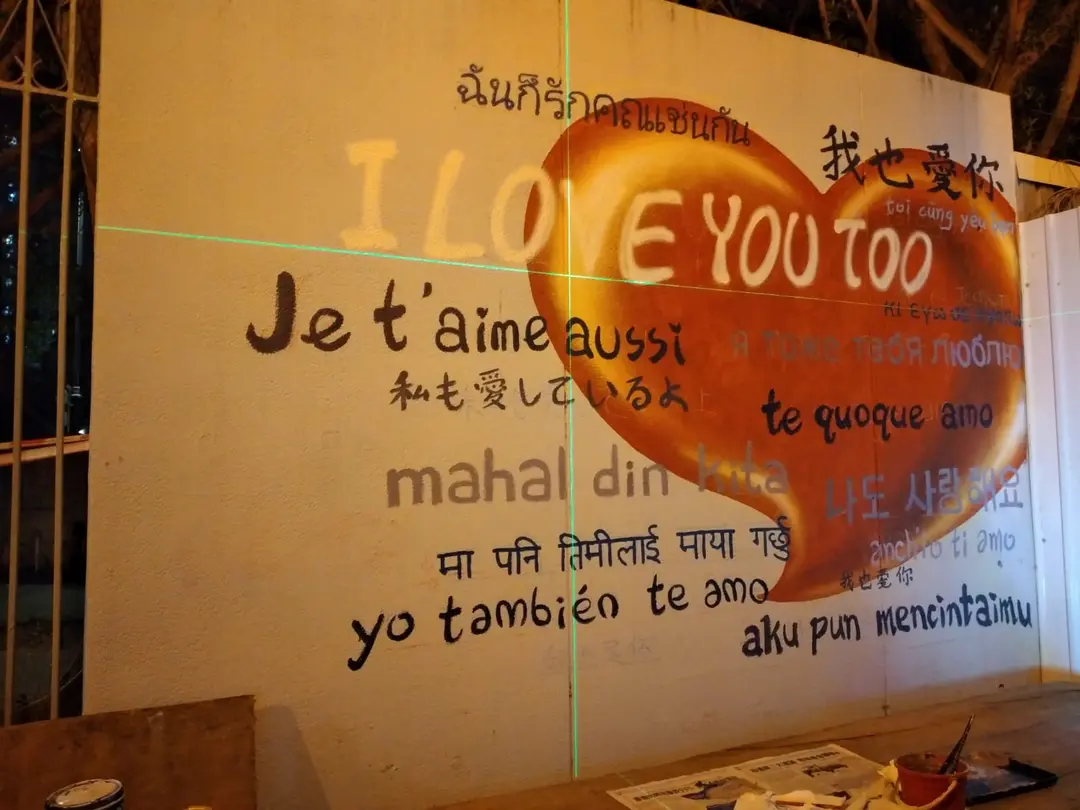 ฉันก็รักคุณเช่นกัน
我也愛你
I LOVE YOU TOO
toi cũng yeu
Je t'aime aussi
κι εγω
я тоже тебя люблю
私も愛しているよ
te quoque amo
mahal din kita
나도 사랑해요
anch'io ti amo
मा पनि तिमीलाई माया गर्छु
我也愛你
yo también te amo
aku pun mencintaimu